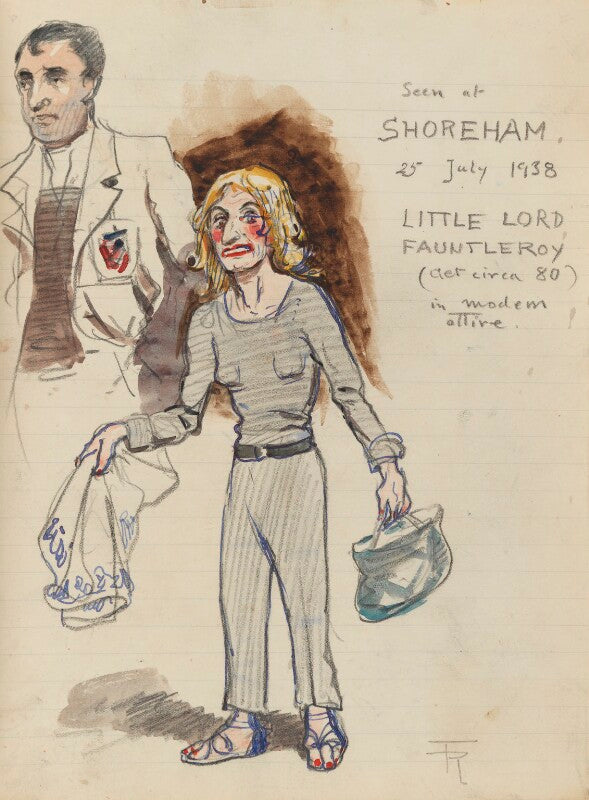 Seen at
SHOREHAM.
25 July 1938
LITTLE LORD
FAUNTLEROY
(aet circa 80)
in modern
attire.